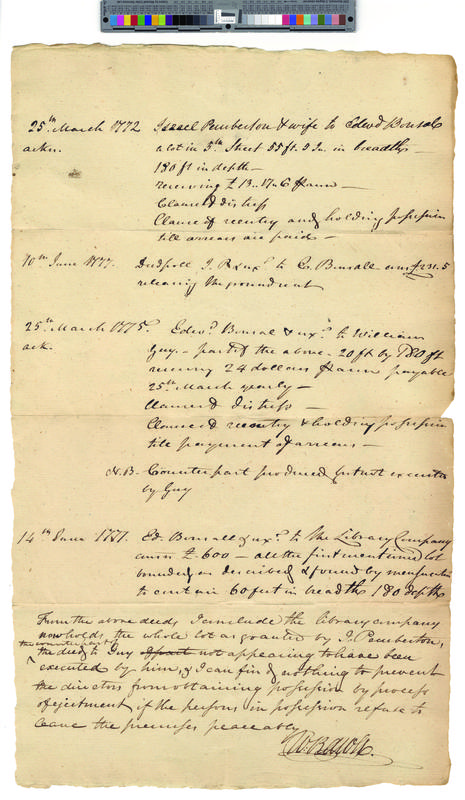 25th March 1772 Israel Pemberton & wife to Edwd Bonsal
ackn. a lot in 5th Street 55 ft. 5 In. in breadth —
180 ft in depth —
reserving £13..17..6 p ann —
Clause of distress
Clause of reentry and holding possession
till arrears are paid —
10th June 1777. Deed poll I. P & ux. to E. Bonsall £231.5
releasing the ground rent
25th March 1775. Edwd. Bonsal & ux. to William
ack. Guy. — part of the above — 20 ft by 180 ft
reserving 24 dollars p ann payable
25th March yearly —
Clause of distress —
Clause of reentry & holding possession
till payment of arrears —
N.B. Counterpart produced but not executed
by Guy
14th June 1777. Ed. Bonsall & ux. to the Library Company
£600 — all the first mentioned lot
bounded as described & found by mensuration
to contain 60 feet in breadth 180 depth
From the above deeds, I conclude the library company
now holds the whole lot as granted by I. Pemberton,
the counterpart of
the deed to Guy not appearing to have been
executed by him, & I can find nothing to prevent
the directors from obtaining possession by process
of ejectment if the persons in possession refuse to
leave the premises peaceably
W. Rawle.